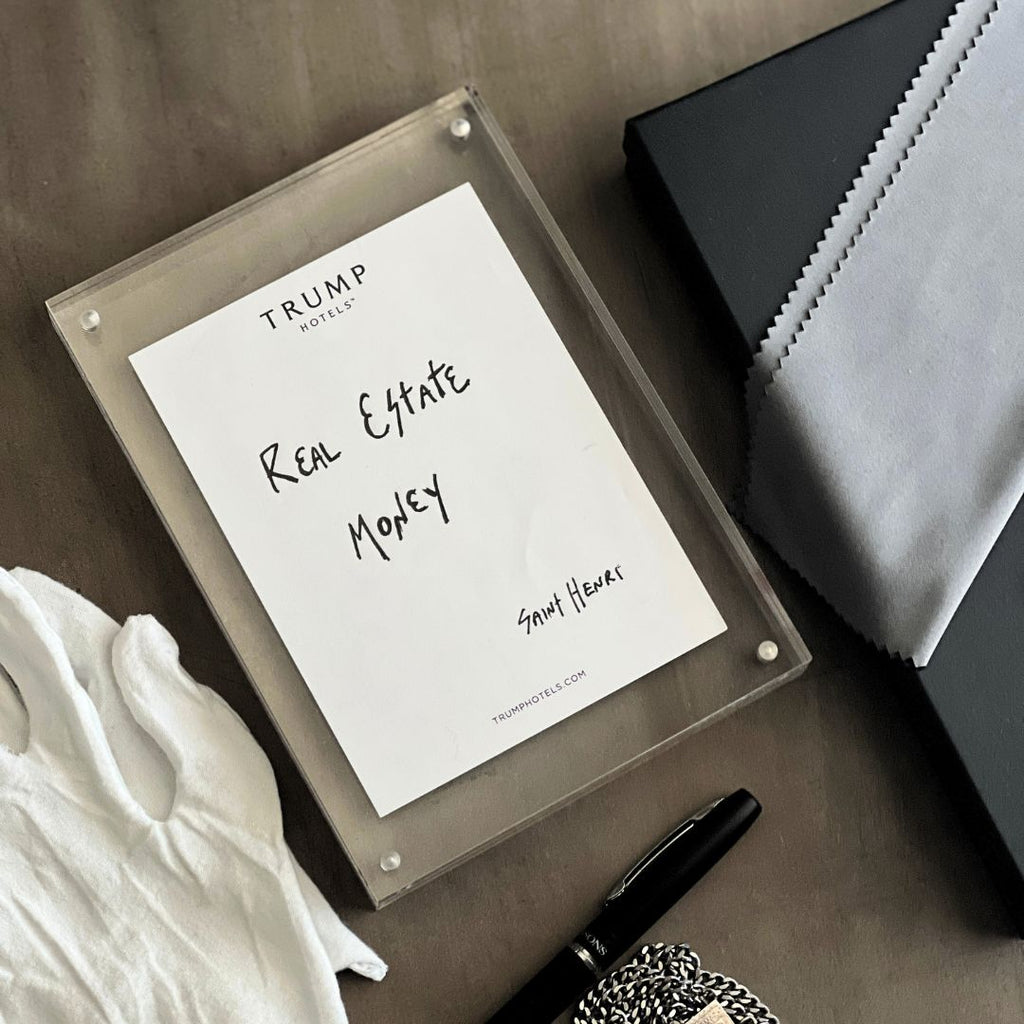 TRUMP
HOTELS™
REAL ESTATE
MONEY
SAINT HENRI
TRUMPHOTELS.COM